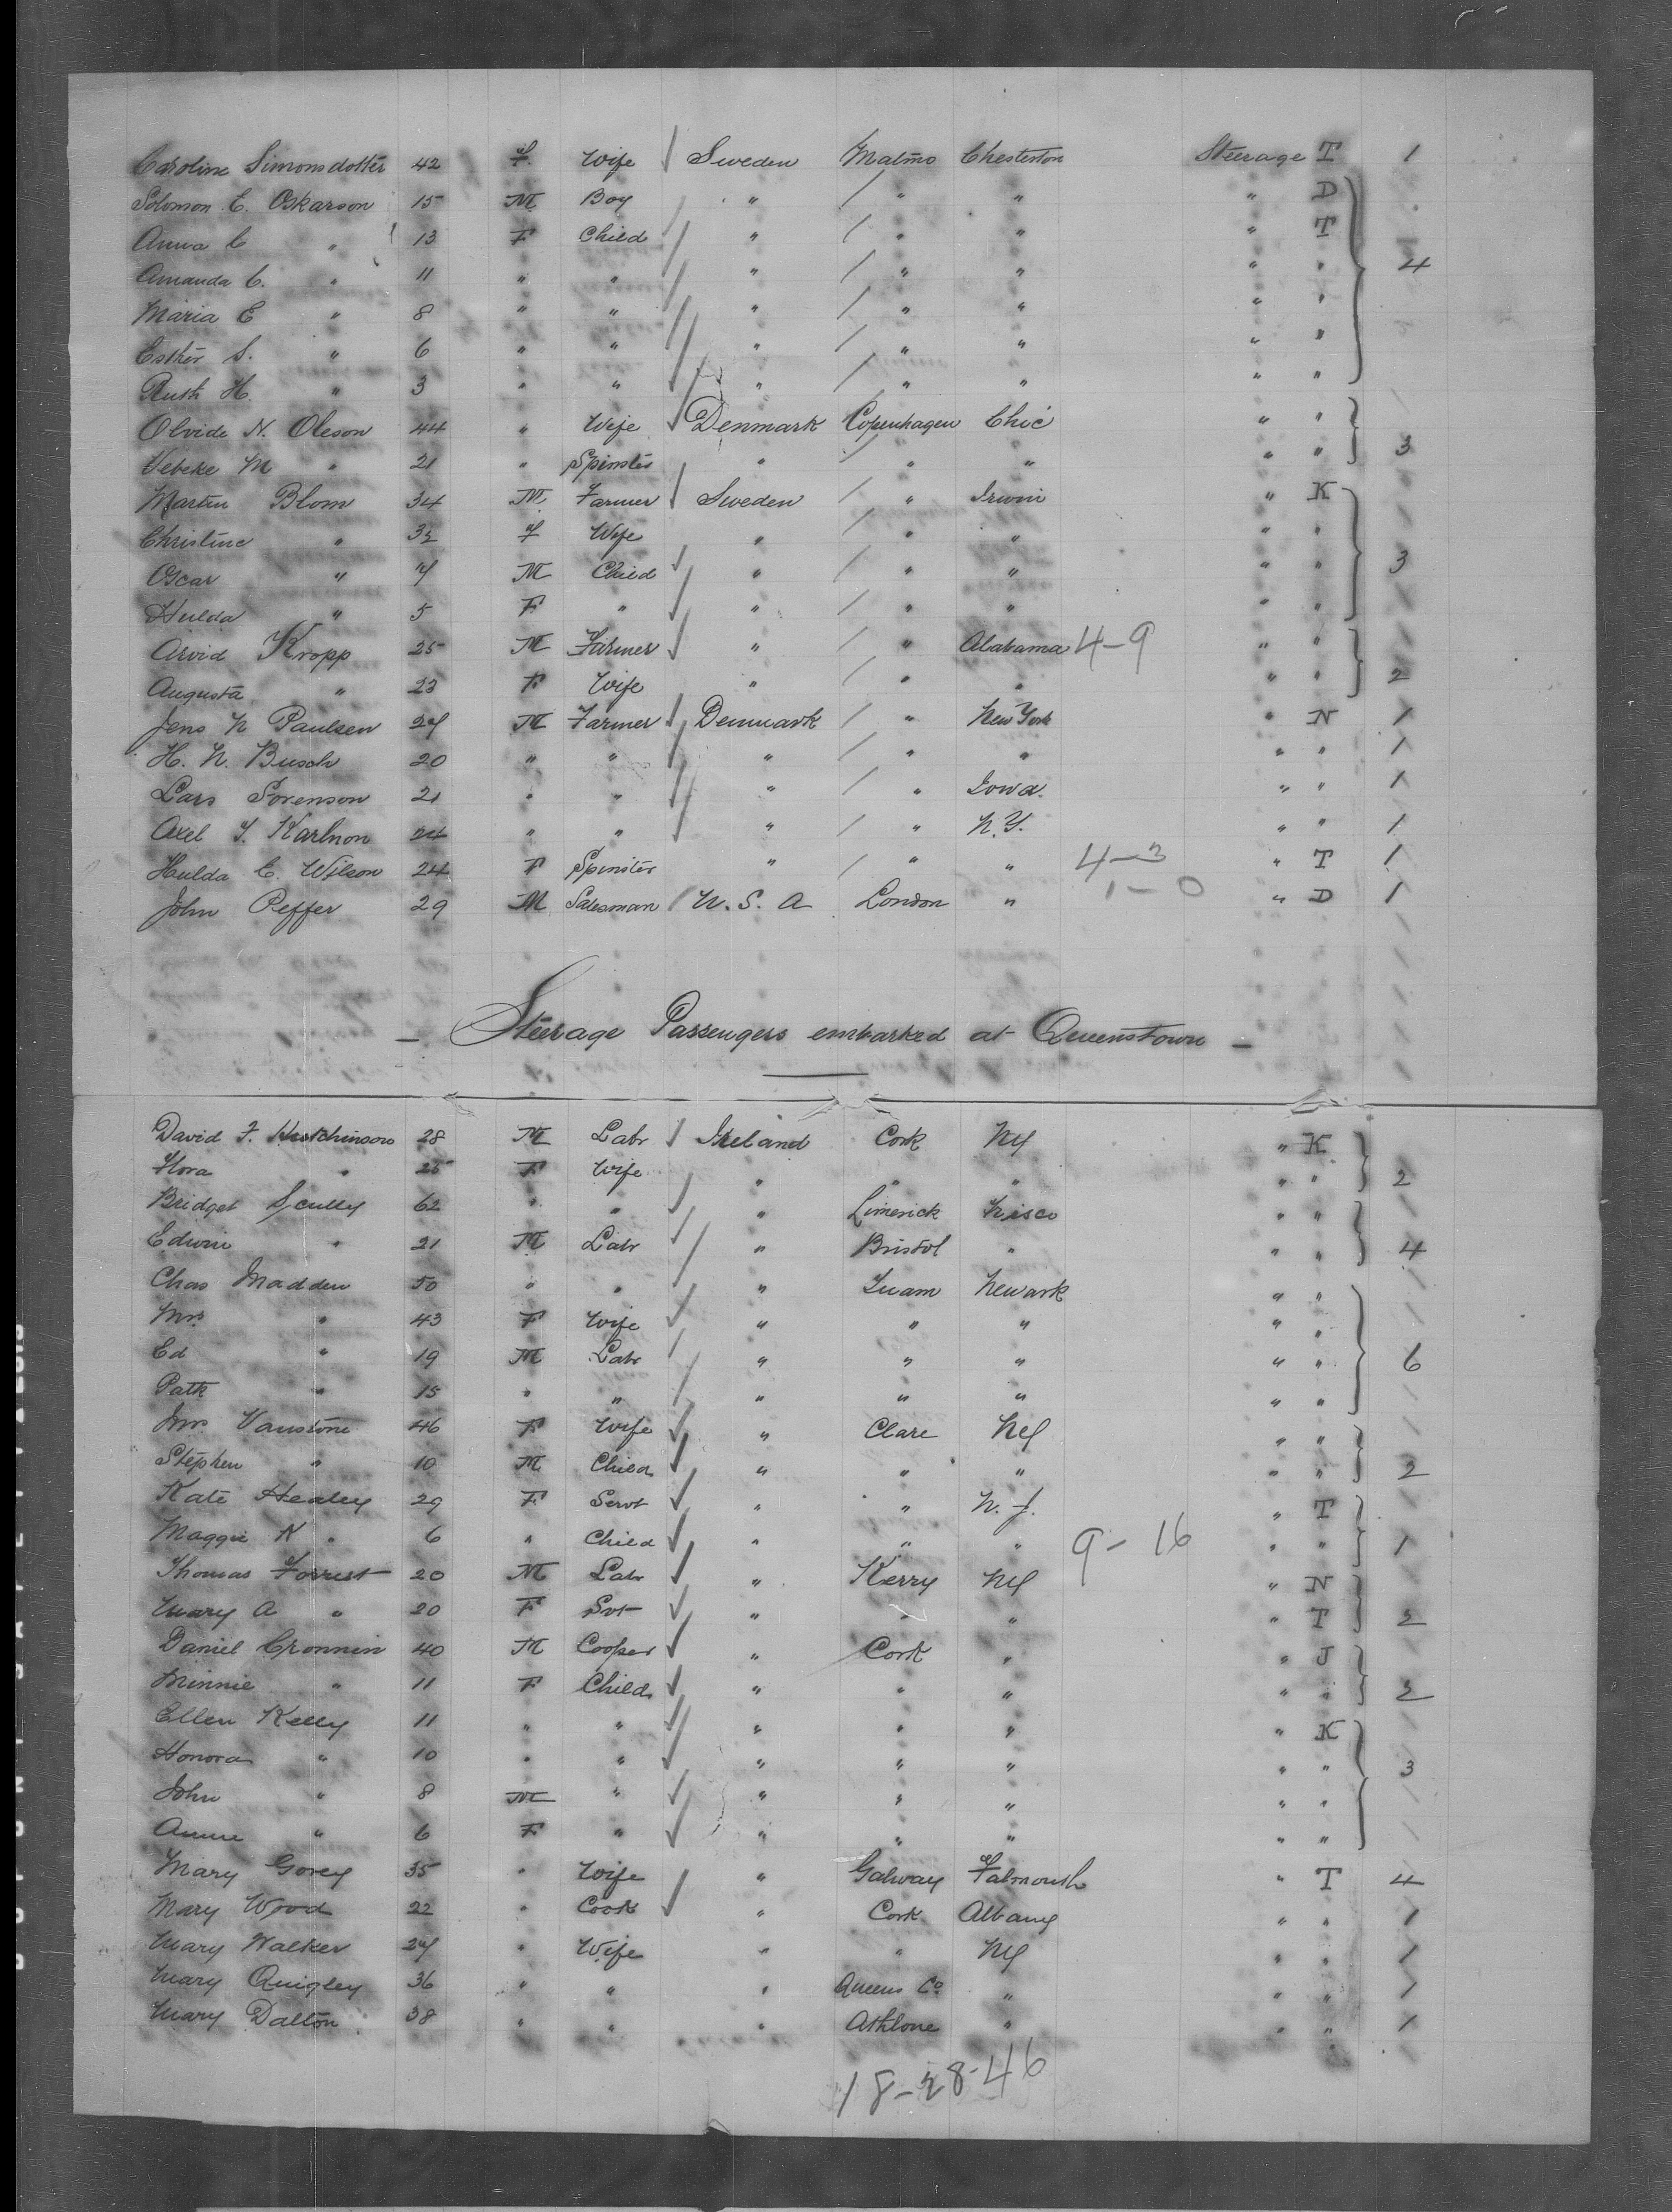 Caroline Simonsdotter 42 F. Wife Sweden Malmo Chesterton Steerage T 1
Solomon E. Oskarson 15 M Boy " " " " D
Anna C " 13 F Child " " " " T
Amanda C. " 11 " " " " " " " 4
Maria E " 8 " " " " " " "
Esther S. " 6 " " " " " " "
Ruth H. " 3 " " " " " " "
Olvide N. Oleson 44 " Wife Denmark Copenhagen Chic " "
Vebeke M " 21 " Spinster " " " " " 3
Marten Blom 34 M Farmer Sweden " Irwin " K
Christine " 32 F Wife " " " " "
Oscar " 7 M Child " " " " " 3
Hulda " 5 F " " " " " "
Arvid Kropp 25 M Farmer " " Alabama 4-9 " "
Augusta " 23 F Wife " " " " " 2
Jens N Paulsen 27 M Farmer Denmark " New York " N 1
H. N. Busch 20 " " " " " " " 1
Lars Sorenson 21 " " " " Iowa. " " 1
Axel Karlnon 24 " " " " N.Y. " " 1
Hulda C. Wilson 24 F Spinster " " " 4-3 " T 1
John Peffer 29 M Salesman U. S. A London " 1-0 " D 1
- Steerage Passengers embarked at Queenstown -
David F. Hutchinson 28 M Labr Ireland Cork NY " K
Flora " 25 F Wife " " " " " 2
Bridget Scully 62 " " " Limerick Frisco " "
Edwin " 21 M Labr " Bristol " " " 4
Chas Madden 50 " " " Tuam Newark " "
Mrs. " 43 F Wife " " " " "
Ed " 19 M Labr " " " " " 6
Patk " 15 " " " " " " "
Mrs. Vanstone 46 F Wife " Clare NY " "
Stephen " 10 M Child " " " " " 2
Kate Healey 29 F Servt " " N. J. " T
Maggie K " 6 " Child " " " 9-16 " " 1
Thomas Forrest 20 M Labr " Kerry NY " N
Mary A " 20 F Svt " " " " T 2
Daniel Cronnin 40 M Cooper " Cork " " J
Minnie " 11 F Child " " " " " 2
Ellen Kelly 11 " " " " " " K
Honora " 10 " " " " " " " 3
John " 8 M " " " " " "
Annie " 6 F " " " " " "
Mary Gorey 35 " Wife " Galway Falmouth " T 4
Mary Wood 22 " Cook " Cork Albany " " 1
Mary Walker 27 " Wife " " NY " " 1
Mary Quigley 36 " " " Queens Co " " " 1
Mary Dalton 38 " " " Athlone " " " 1
18-28-46